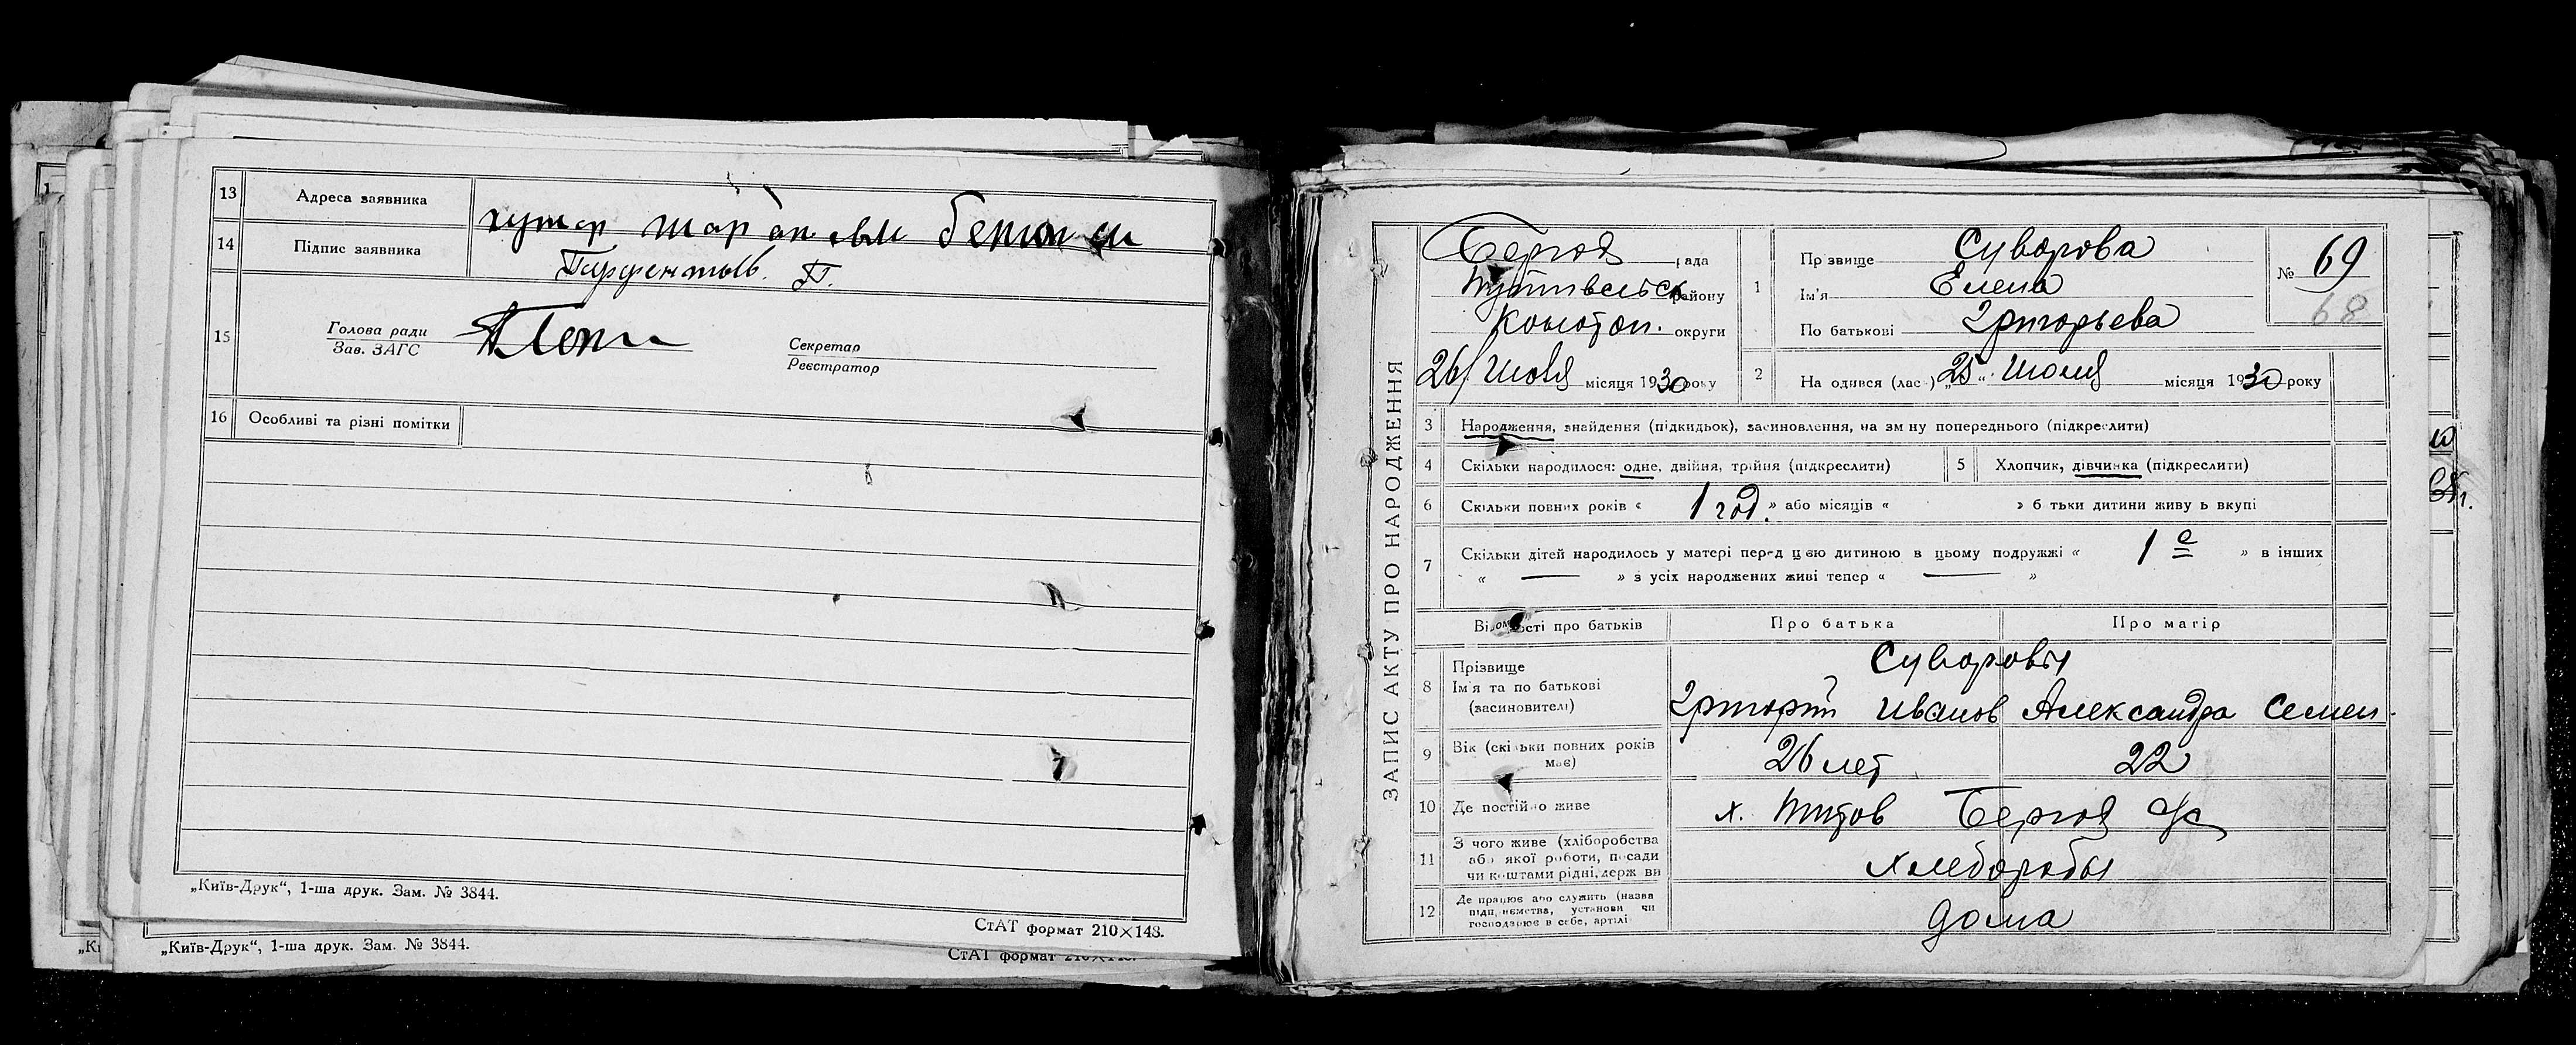 13 Адреса заявника
хутор
14 Підпис заявника
15 Голова ради
Зав. ЗАГС
Секретар
Реєстратор
16 Особливі та різні помітки
„Київ-Друк“, 1-ша друк. Зам. № 3844.
СтАТ формат 210×148.
„Київ-Друк“, 1-ша друк. Зам. № 3844.
СтАТ формат
ЗАПИС АКТУ ПРО НАРОДЖЕННЯ
рада
району
Конотоп. округи
26/ Июля місяця 1930 року
1 Прізвище Суворова
Ім'я Елена
По батькові Григорьева
№ 69
68
2 На одився (лас.) „25“ Июля місяця 1930 року
3 Народження, знайдення (підкидьок), засиновлення, на зм ну попереднього (підкреслити)
4 Скільки народилося: одне, двійня, трійня (підкреслити)
5 Хлопчик, дівчинка (підкреслити)
6 Скільки повних років « 1 год. » або місяців « » б тьки дитини живу ь вкупі
7 Скільки дітей народилось у матері перед цією дитиною в цьому подружжі « 1 е » в інших
« — » з усіх народжених живі тепер « — »
Відомості про батьків
Про батька
Про матір
8 Прізвище
Ім'я та по батькові
(засиновителі)
Суворовы
Григорий Иванов Александра Семен.
9 Вік (скільки повних років
має)
26 лет
22
10 Де постійно живе
х. Титов
11 З чого живе (хліборобства
або якої роботи, посади
чи коштами рідні, держ ви
Хлеборобы
12 Де працює або служить (назва
підп.иємства, установи чи
господарює в себе, артілі
дома